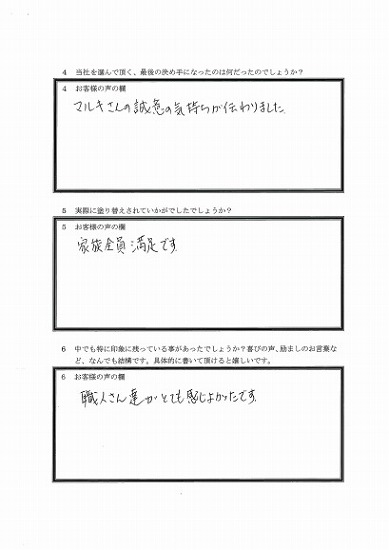 4 当社を選んで頂く、最後の決め手になったのは何だったのでしょうか？
4 お客様の声の欄
マルキさんの誠意の気持ちが伝わりました。
5 実際に塗り替えされていかがでしたでしょうか？
5 お客様の声の欄
家族全員満足です
6 中でも特に印象に残っている事があったでしょうか？喜びの声、励ましのお言葉な
ど、なんでも結構です。具体的に書いて頂けると嬉しいです。
6 お客様の声の欄
職人さん達がとても感じよかったです。